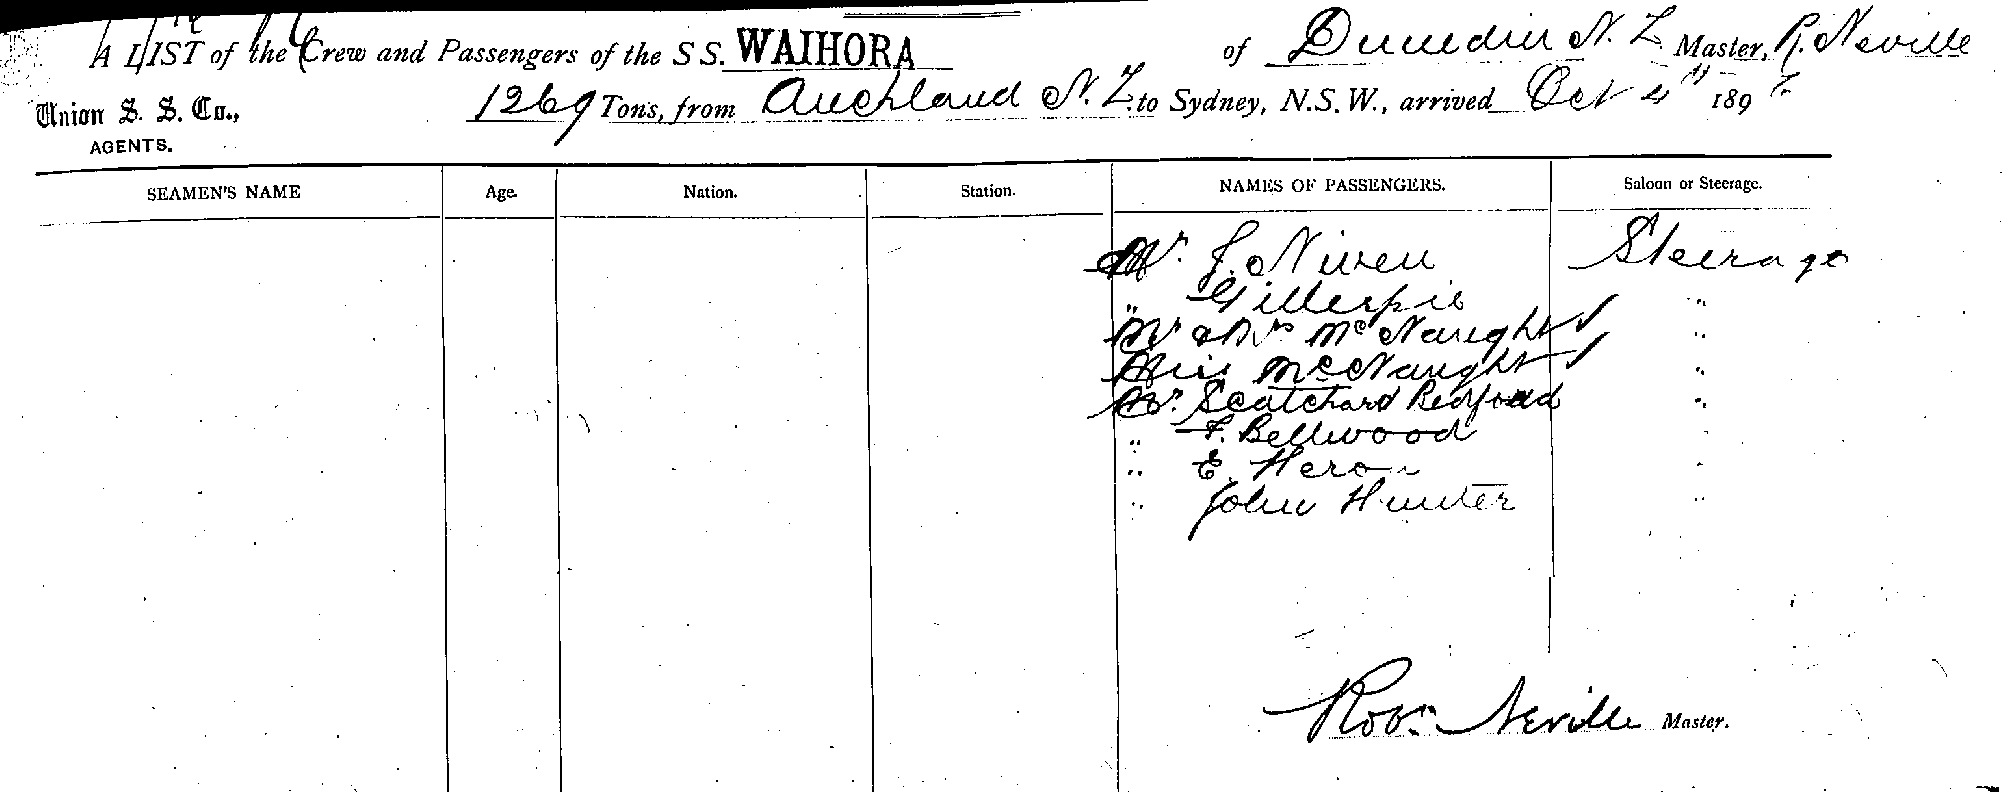 A LIST of the Crew and Passengers of the S S. WAIHORA of Dunedin N. Z. Master, R. Neville
Union S. S. Co., 1269 Tons, from Auckland N. Z. to Sydney, N.S.W., arrived Oct 4th 1897
AGENTS.
SEAMEN'S NAME Age. Nation. Station. NAMES OF PASSENGERS. Saloon or Steerage.
Mr. J. Niven Steerage
" Gillespie "
Mr & Mrs McNaught ✓ "
Miss McNaught ✓ "
Mr. Scatchard Bedford "
" F. Bellwood "
" E. Heron "
" John Hunter "
Robt Neville Master.